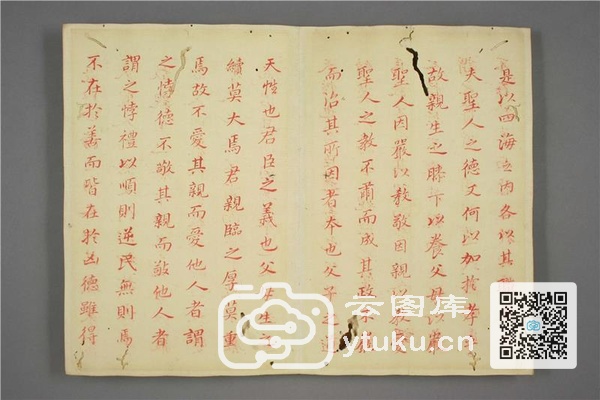 是以四海之内各以其
夫聖人之德又何以加於孝
故親生之膝下以養父母日嚴
聖人因嚴以教敬因親以教愛
聖人之教不肅而成其政不
而治其所因者本也父子之道
天性也君臣之義也父母生之
續莫大焉君親臨之厚莫重
焉故不愛其親而愛他人者謂
之悖德不敬其親而敬他人者
謂之悖禮以順則逆民無則焉
不在於善而皆在於凶德雖得
云图库
ytuku.cn